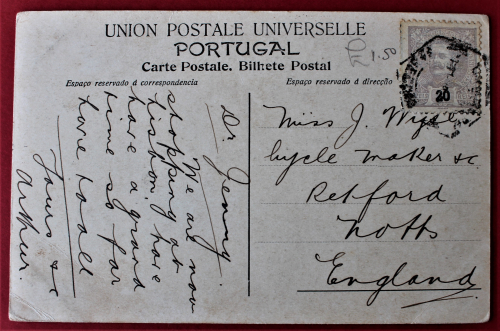 UNION POSTALE UNIVERSELLE
PORTUGAL
Carte Postale. Bilhete Postal
£1.50
Espaço reservado á correspondencia
Espaço reservado á direcção
Dr. Jenny.
We are now
stopping at
Lisbon, have
have a grand
time so far
love to all
Yours &c
Arthur.
Miss J.
Cycle Maker &c
Retford
Notts
England
20